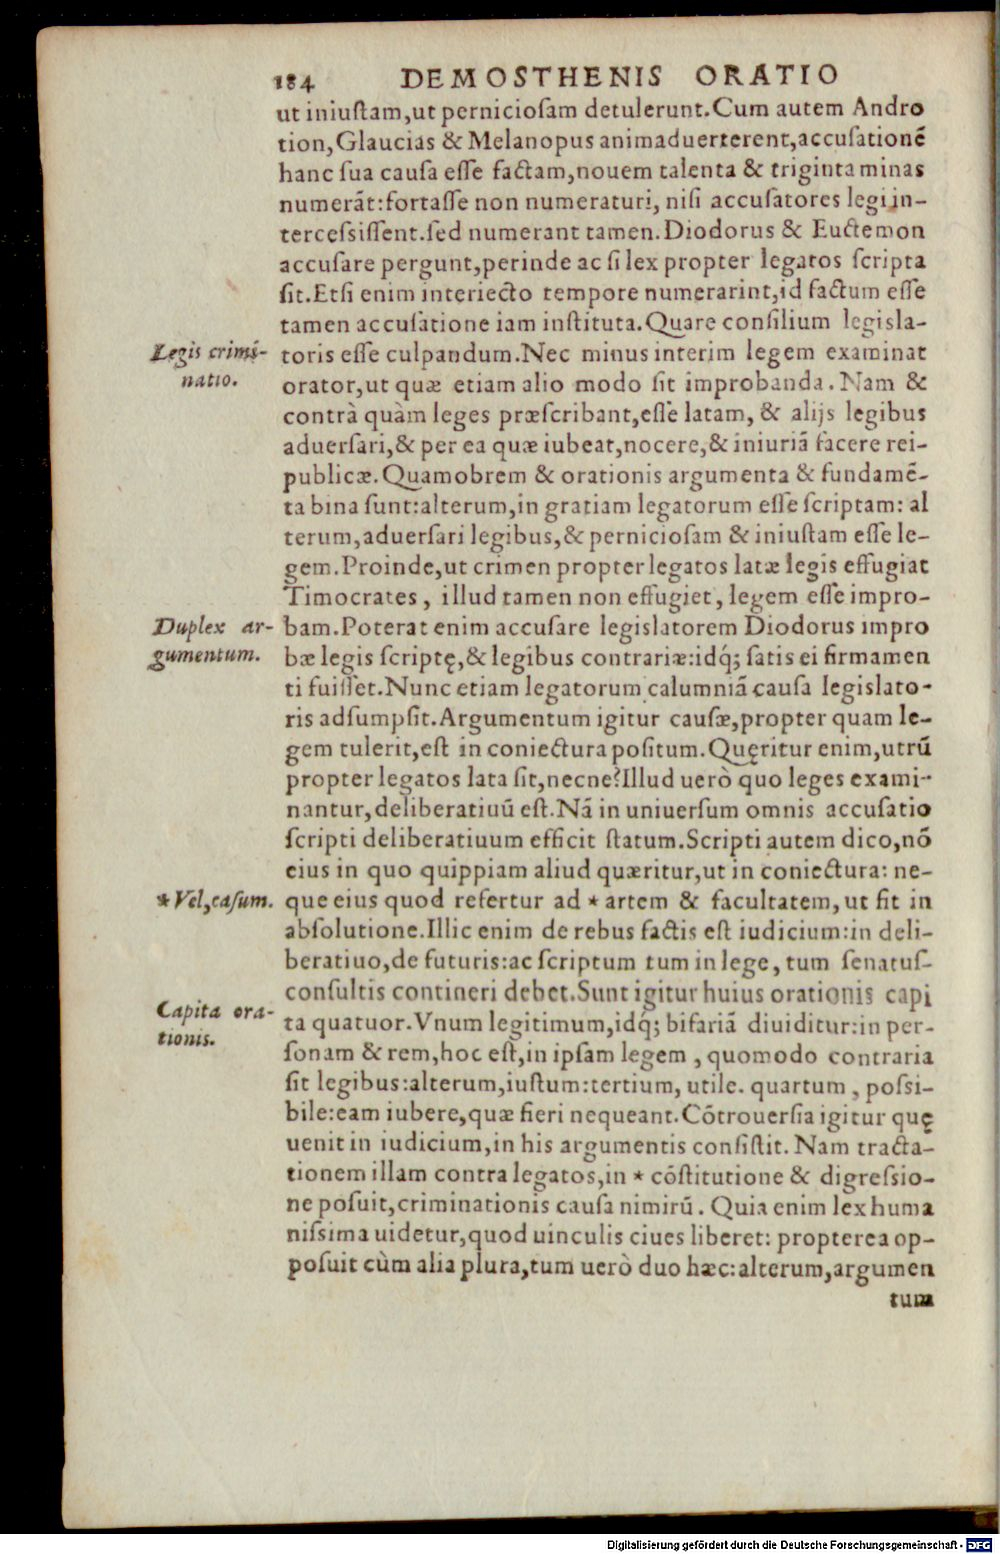 184 DEMOSTHENIS ORATIO
ut iniuſtam,ut pernicioſam detulerunt.Cum autem Andro
tion,Glaucias & Melanopus animaduerterent,accuſationẽ
hanc ſua cauſa eſſe factam,nouem talenta & triginta minas
numerãt:fortaſſe non numeraturi, niſi accuſatores legi in-
terceſsiſſent.ſed numerant tamen.Diodorus & Euctemon
accuſare pergunt,perinde ac ſi lex propter legatos ſcripta
ſit.Etſi enim interiecto tempore numerarint,id factum eſſe
tamen accuſatione iam inſtituta.Quare conſilium legisla-
Legis crimi-
natio.
toris eſſe culpandum.Nec minus interim legem examinat
orator,ut quæ etiam alio modo ſit improbanda. Nam &
contrà quàm leges præſcribant,eſſe latam, & alijs legibus
aduerſari,& per ea quæ iubeat,nocere,& iniuriã facere rei-
publicæ.Quamobrem & orationis argumenta & fundamẽ-
ta bina ſunt:alterum,in gratiam legatorum eſſe ſcriptam: al
terum,aduerſari legibus,& pernicioſam & iniuſtam eſſe le-
gem.Proinde,ut crimen propter legatos latæ legis effugiat
Timocrates, illud tamen non effugiet, legem eſſe impro-
Duplex ar-
gumentum.
bam.Poterat enim accuſare legislatorem Diodorus impro
bæ legis ſcriptę,& legibus contrariæ:idq́; ſatis ei firmamen
ti fuiſſet.Nunc etiam legatorum calumniã cauſa legislato-
ris adſumpſit.Argumentum igitur cauſæ,propter quam le-
gem tulerit,eſt in coniectura poſitum.Quęritur enim,utrũ
propter legatos lata ſit,necne?Illud uerò quo leges exami-
nantur,deliberatiuũ eſt.Nã in uniuerſum omnis accuſatio
ſcripti deliberatiuum efficit ſtatum.Scripti autem dico,nõ
eius in quo quippiam aliud quæritur,ut in coniectura: ne-
* Vel,caſum.
que eius quod refertur ad * artem & facultatem, ut fit in
abſolutione.Illic enim de rebus factis eſt iudicium:in deli-
beratiuo,de futuris:ac ſcriptum tum in lege, tum ſenatuſ-
conſultis contineri debet.Sunt igitur huius orationis capi
Capita ora-
tionis.
ta quatuor.Vnum legitimum,idq́; bifariã diuiditur:in per-
ſonam & rem,hoc eſt,in ipſam legem, quomodo contraria
ſit legibus:alterum,iuſtum:tertium, utile. quartum, poſsi-
bile:eam iubere,quæ fieri nequeant.Cõtrouerſia igitur quę
uenit in iudicium,in his argumentis conſiſtit. Nam tracta-
tionem illam contra legatos,in * cõſtitutione & digreſsio-
ne poſuit,criminationis cauſa nimirũ. Quia enim lex huma
niſsima uidetur,quod uinculis ciues liberet: propterea op-
poſuit cùm alia plura,tum uerò duo hæc:alterum,argumen
tum
Digitalisierung gefördert durch die Deutsche Forschungsgemeinschaft - DFG